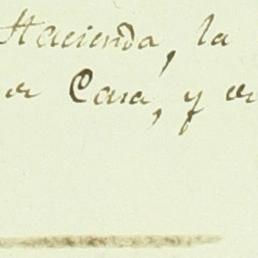 Hacienda, la
Casa, y